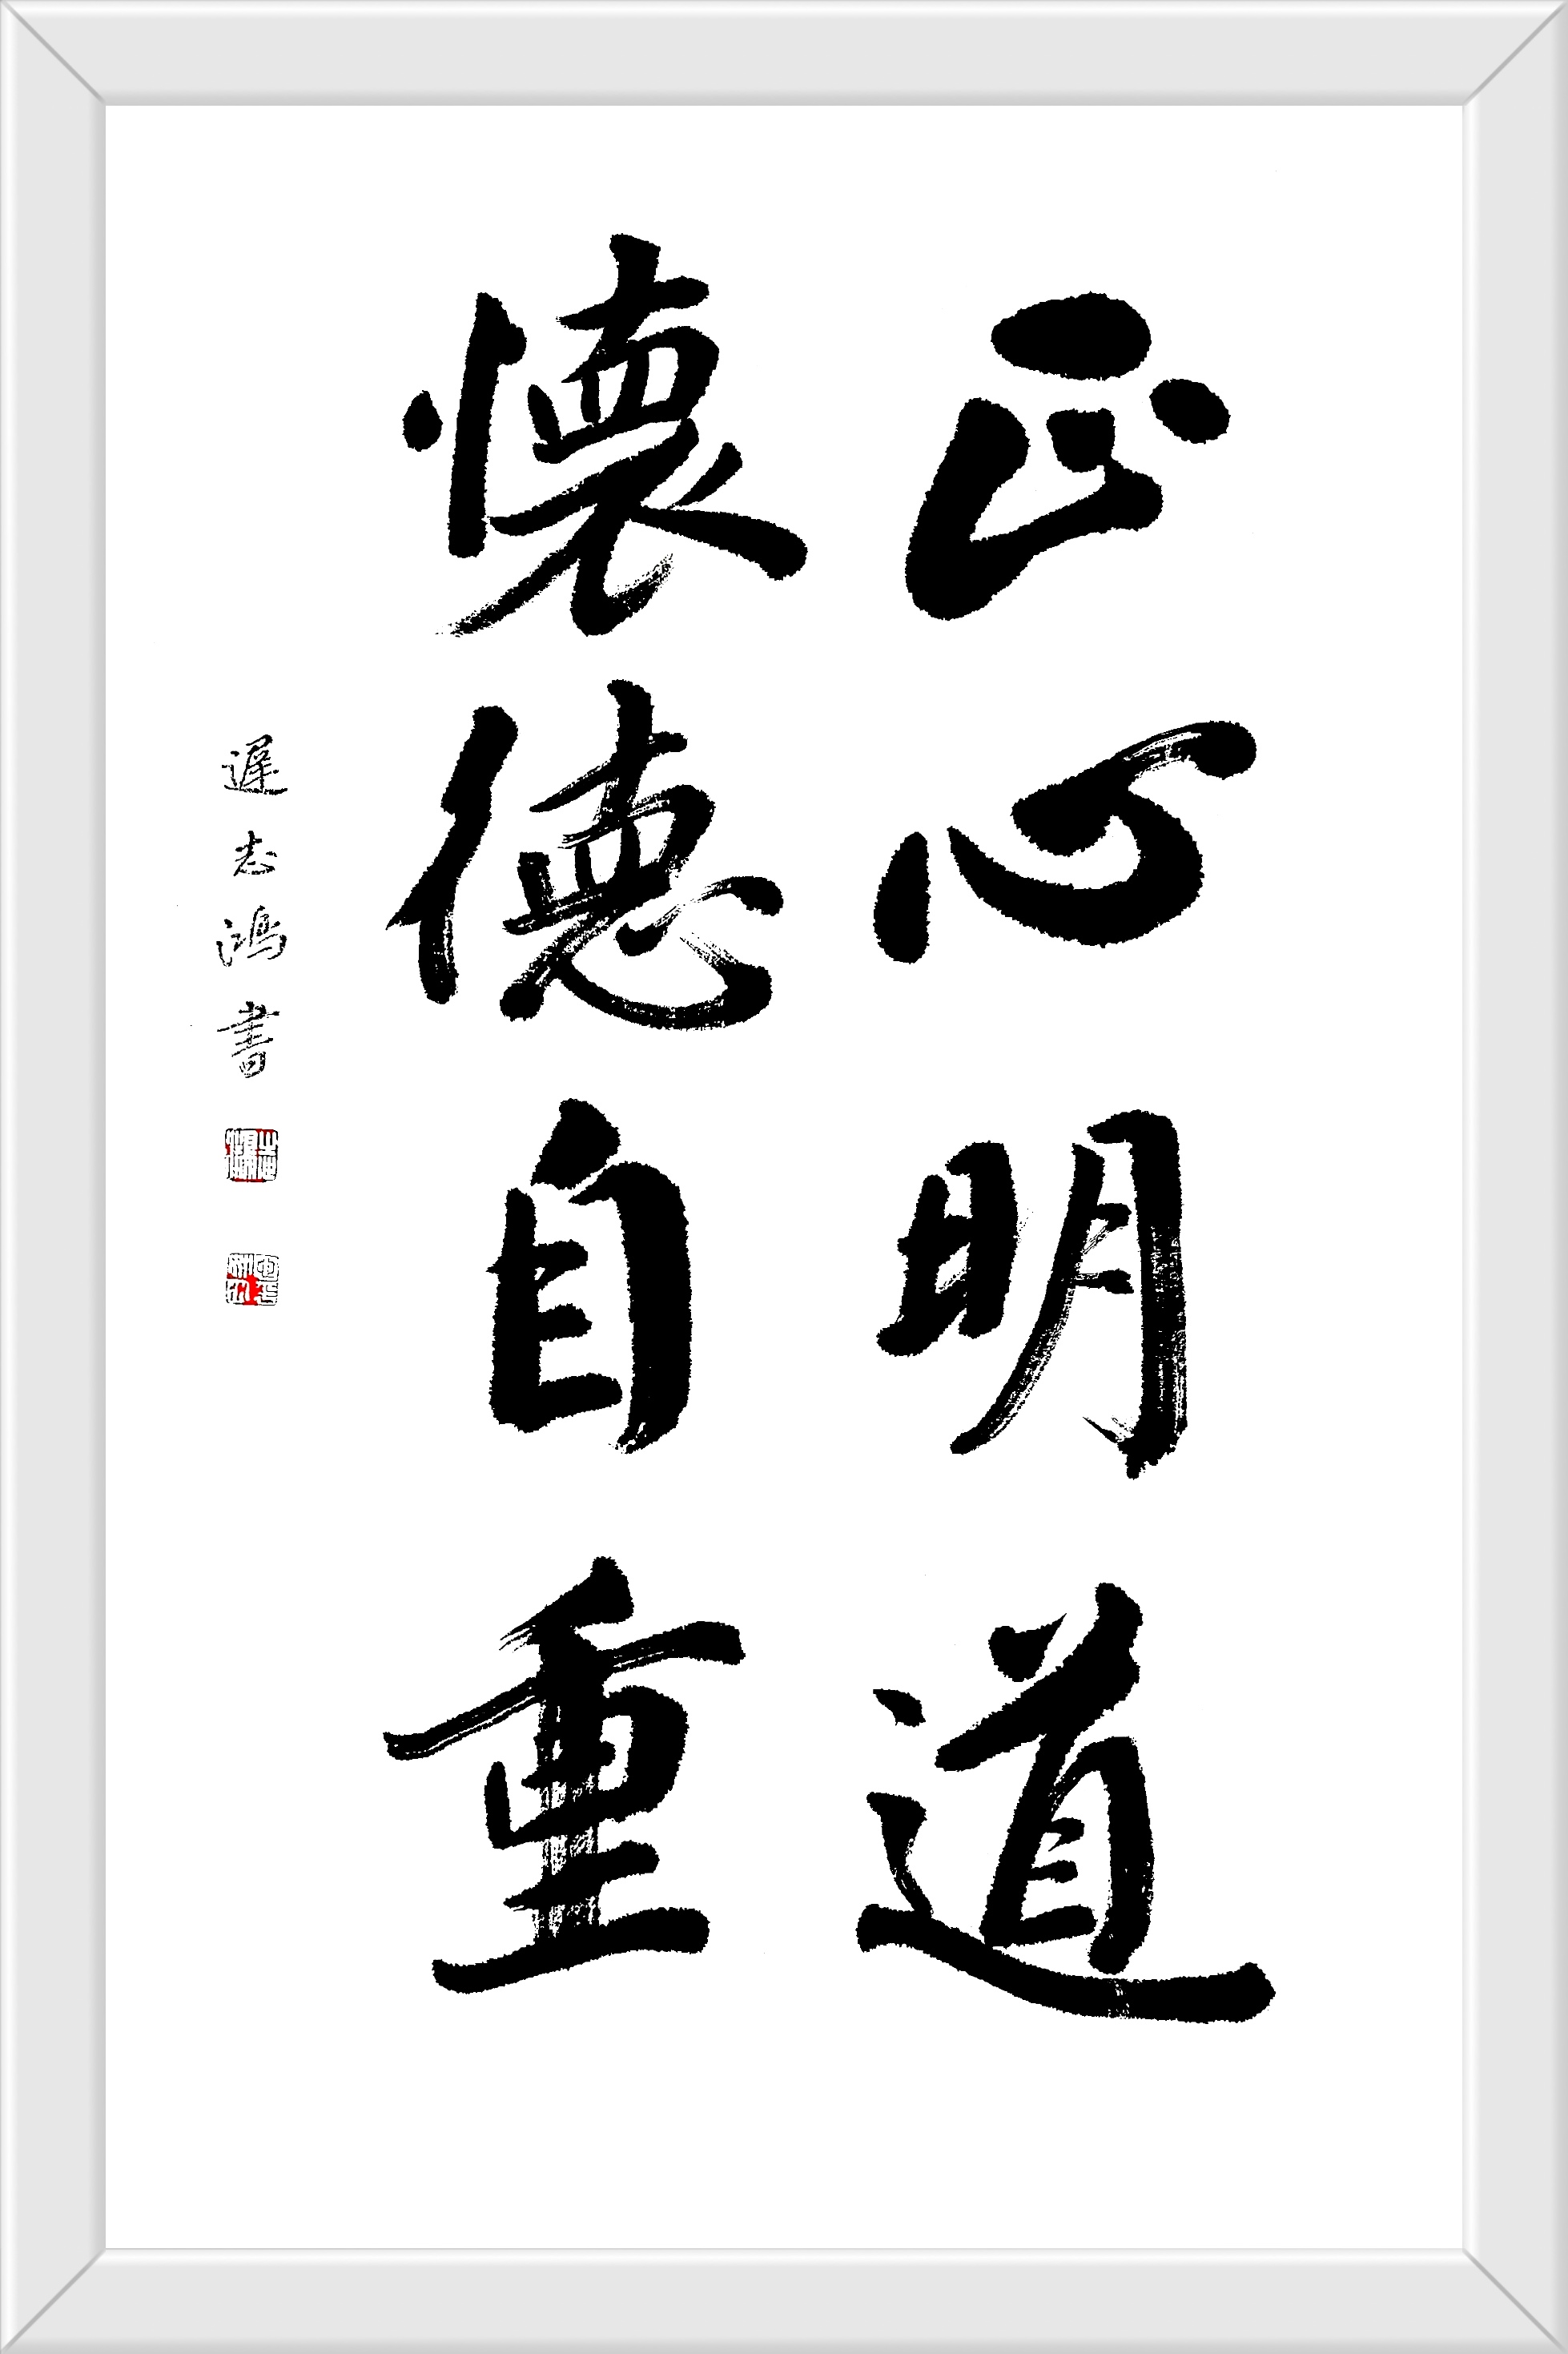 正心明道
懷德自重
遲志鴻書